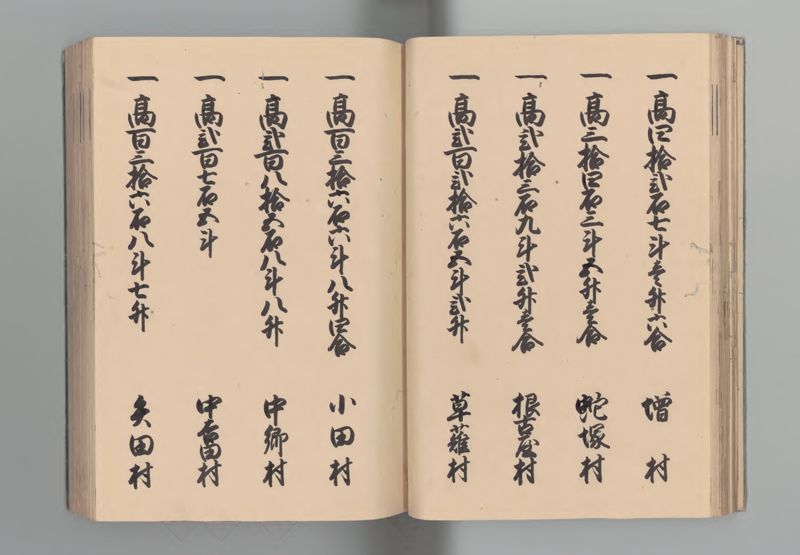 一高四拾弐石七斗壱升六合 増村
一高三拾四石三斗五升壱合 蛇塚村
一高弐拾三石九斗弐升壱合 根古屋村
一高弐百弐拾六石五斗弐升 草薙村
一高百三拾六石六斗八升四合 小田村
一高弐百八拾五石八斗八升 中郷村
一高弐百七石五斗 中吉田村
一高百三拾六石八斗七升 矢田村